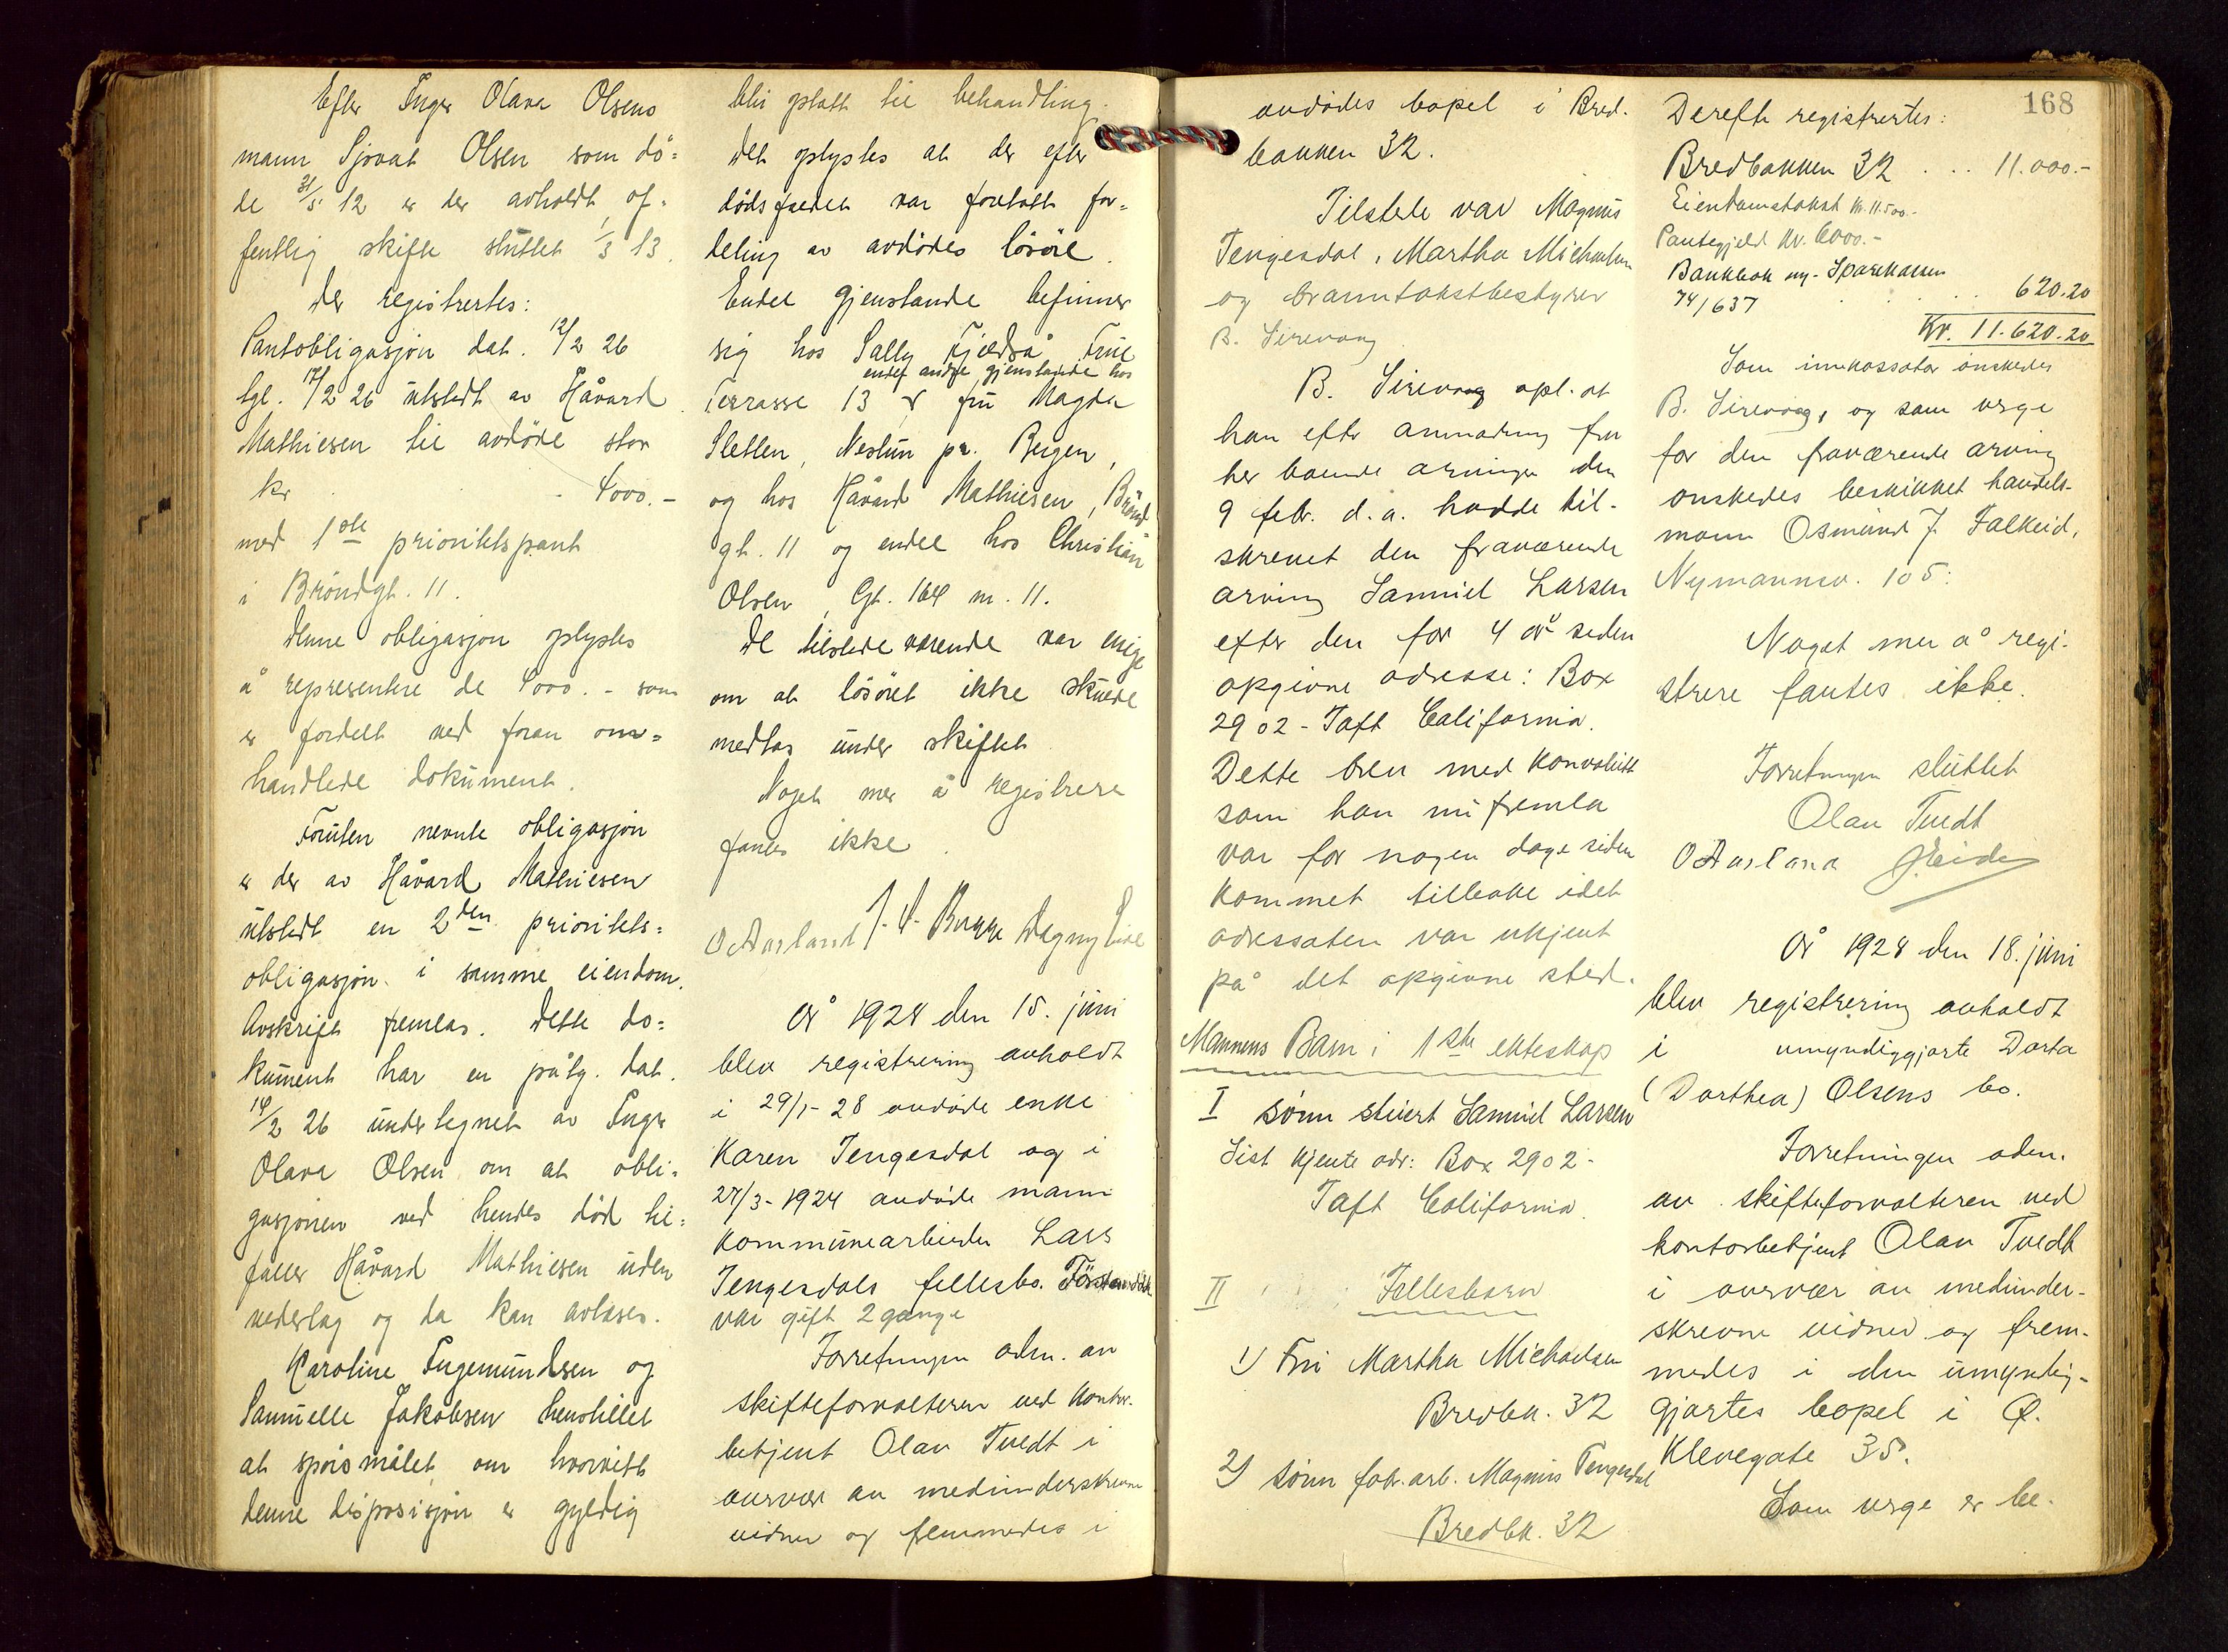 Efter Inger Olava Olsens
mann Sjovat Olsen som dö=
de 31/5 12 er der avholdt of=
fentlig skifte sluttet 1/3 13.
Der registrertes:
Pantobligasjon dat. 12/2 26
tgl. 17/2 26 utstedt av Håvard
Mathiesen til avdöde stor
kr . . 4000.-
med 1ste prioritetspant
i Bröndgt. 11.
Denne obligasjon oplystes
å representere de 4000.- som
er fordelt ved foran om=
handlede dokument.
Foruten nevnte obligasjon
er der av Håvard Mathiesen
utstedt en 2den prioritets=
obligasjon i samme eiendom.
Avskrift fremlas. Dette do=
kument har en påtg. dat.
14/2 26 undertegnet av Inger
Olava Olsen om at obli=
gasjonen ved hendes död til=
faller Håvard Mathiesen uden
vederlag og da kan avlases.
Karoline Ingemundsen og
Samuelle Jakobsen henstillet
at spörsmålet om hvorvitt
denne disposisjon er gyldig
blir optatt til behandling.
Det oplystes at der efter
dödsfaldet var foretatt for=
deling av avdödes lösöre.
Endel gjenstande befinner
sig hos Sally Fjeldså, Frue
endel andre gjenstande hos
Terrasse 13 fru Magda
Sletten, Nestun pr. Bergen,
og hos Håvard Mathiesen, Brönd
gt. 11 og endel hos Christian
Olsen, Gt. 164 nr. 11.
De tilstedeværende var enige
om at lösöret ikke skulde
medtas under skiftet.
Noget mer å registrere
fantes ikke.
O Aarland J. Bugge Dagny Lie
År 1928 den 15. juni
blev registrering avholdt
i 29/1-28 avdöde enke
Karen Tengesdal og i
27/3-1924 avdöde mann
kommunearbeider Lars
Tengesdals fellesbo. Förstavdöde
var gift 2 gange
Forretningen adm. av
skifteforvalteren ved kontor-
betjent Olav Tvedt i
overvær av medunderskrevne
vidner og fremmedes i
avdödes bopel i Bred-
bakken 32.
Tilstede var Magnus
Tengesdal, Martha Michaelsen
og branntakstbestyrer
B. Sirevaag.
B. Sirevaag opl. at
han efter anmodning fra
her boende arvinger den
9 febr. d.a. hadde til-
skrevet den fraværende
arving Samuel Larsen
efter den for 4 år siden
opgivne adresse: Box
2902 - Taft California.
Dette brev med konvolutt
som han nu fremla
var for nogen dage siden
kommet tilbake idet
adressaten var ukjent
på det opgivne sted.
Mannens Barn i 1ste ekteskap
I sönn stuert Samuel Larsen
Sist kjente adr: Box 2902-
Taft California.
II Fellesbarn
1) Fru Martha Michaelsen
Bredbk. 32
2) sönn fabr. arb. Magnus Tengesdal
Bredbk. 32
168
Derefter registrertes:
Bredbakken 32 . . . 11.000.-
Eiendomstakst kr. 11.500.-
Pantegjeld kr. 6000.-
Bankbok ny- Sparekassen
74/637 . . . 620.20
Kr. 11.620.20
Som innkassator önskedes
B. Sirevaag, og som verge
for den fraværende arving
önskedes beskikket handels-
mann Osmund J. Falkeid,
Nymannsv. 105.
Noget mer å regi-
strere fantes ikke.
Forretningen sluttet
Olav Tvedt
O Aarland J Eide
År 1928 den 18. juni
blev registrering avholdt
i umyndiggjorte Dorta
(Dorthea) Olsens bo.
Forretningen adm.
av skifteforvalteren ved
kontorbetjent Olav Tvedt
i overvær av medunder-
skrevne vidner og frem-
medes i den umyndig-
gjortes bopel i Ø.
Klevegate 35.
Som verge er be-